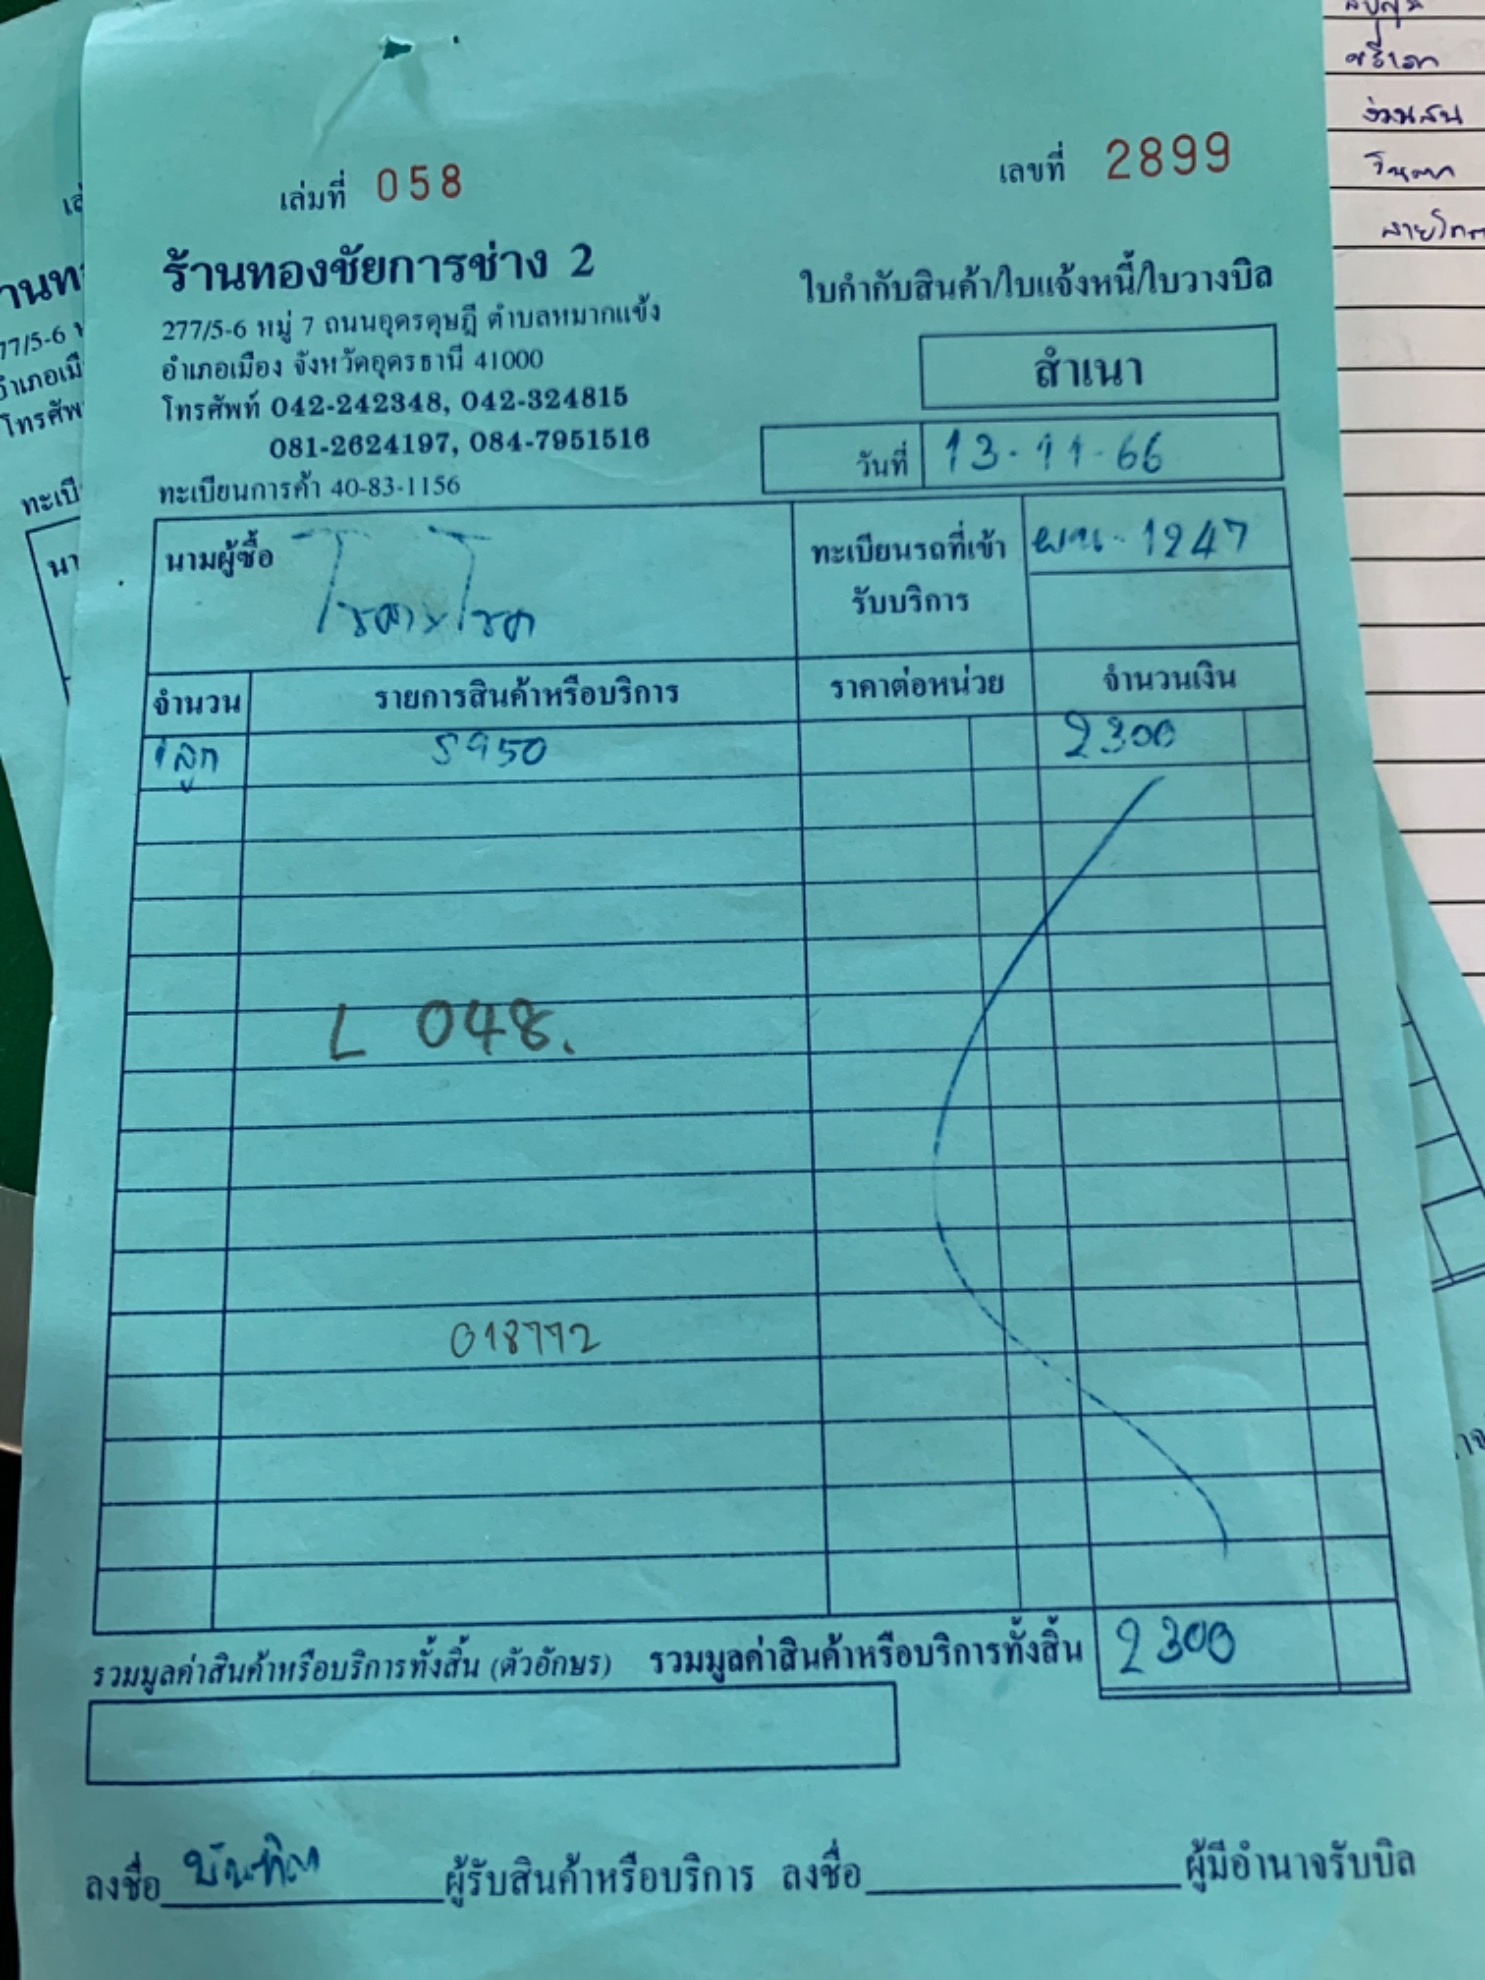 เล่มที่ 058
เลขที่ 2899
ร้านทองชัยการช่าง 2
277/5-6 หมู่ 7 ถนนอุดรดุษฎี ตำบลหมากแข้ง
อำเภอเมือง จังหวัดอุดรธานี 41000
โทรศัพท์ 042-242348, 042-324815
081-2624197, 084-7951516
ทะเบียนการค้า 40-83-1156
ใบกำกับสินค้า/ใบแจ้งหนี้/ใบวางบิล
สำเนา
วันที่ 13-11-66
นามผู้ซื้อ
ทะเบียนรถที่เข้า
รับบริการ
1247
จำนวน รายการสินค้าหรือบริการ ราคาต่อหน่วย จำนวนเงิน
1ลูก S950 2300
L 048.
018772
รวมมูลค่าสินค้าหรือบริการทั้งสิ้น (ตัวอักษร) รวมมูลค่าสินค้าหรือบริการทั้งสิ้น 2300
ลงชื่อ บัณฑิต ผู้รับสินค้าหรือบริการ ลงชื่อ ผู้มีอำนาจรับบิล